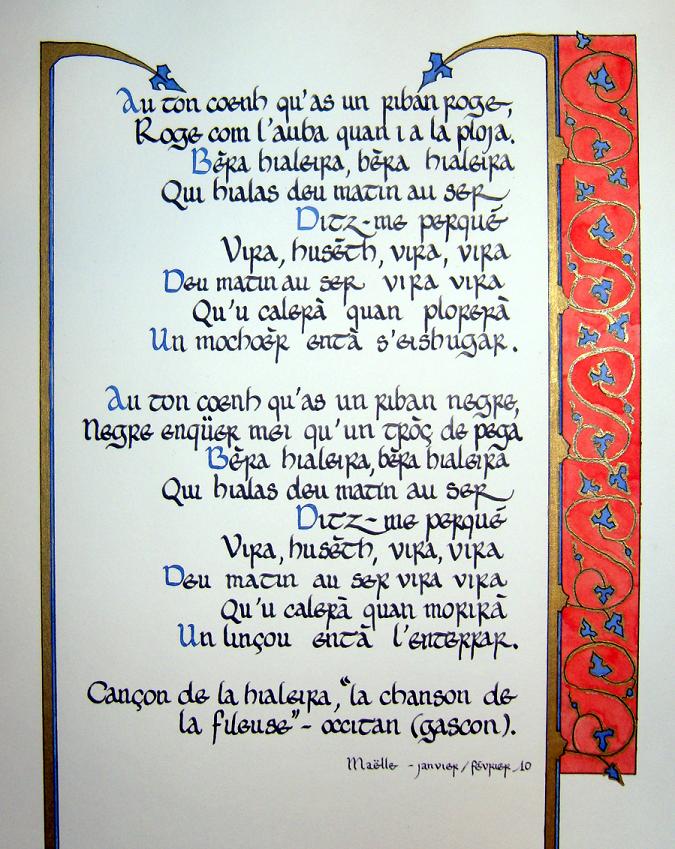 Au ton coenh qu'as un riban roge,
Roge com l'auba quan i a la ploja.
Bèra hialeira, bèra hialeira
Qui hialas deu matin au ser
Ditz-me perqué
Vira, husèth, vira, vira
Deu matin au ser vira vira
Qu'u calerà quan plorerà
Un mochoèr entà s'eishugar.
Au ton coenh qu'as un riban negre,
Negre enqüer mei qu'un tròç de pega
Bèra hialeira, bèra hialeira
Qui hialas deu matin au ser
Ditz-me perqué
Vira, husèth, vira, vira
Deu matin au ser vira vira
Qu'u calerà quan morirà
Un linçou entà l'enterrar.
Cançon de la hialeira, "la chanson de
la fileuse" - occitan (gascon).
Maëlle - janvier / février 10